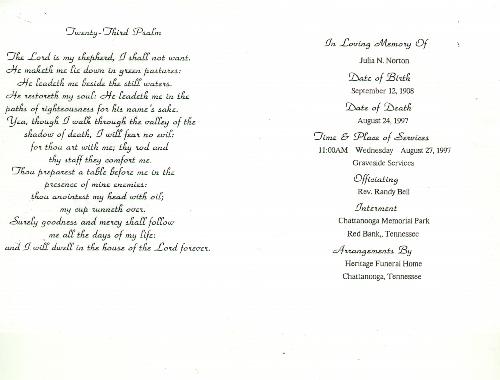 Twenty-Third Psalm
The Lord is my shepherd, I shall not want.
He maketh me lie down in green pastures:
He leadeth me beside the still waters.
He restoreth my soul: He leadeth me in the
paths of righteousness for his name's sake.
Yea, though I walk through the valley of the
shadow of death, I will fear no evil:
for thou art with me; thy rod and
thy staff they comfort me.
Thou preparest a table before me in the
presence of mine enemies:
thou anointest my head with oil;
my cup runneth over.
Surely goodness and mercy shall follow
me all the days of my life:
and I will dwell in the house of the Lord forever.
In Loving Memory Of
Julia N. Norton
Date of Birth
September 12, 1908
Date of Death
August 24, 1997
Time & Place of Services
11:00AM Wednesday August 27, 1997
Graveside Services
Officiating
Rev. Randy Bell
Interment
Chattanooga Memorial Park
Red Bank,, Tennessee
Arrangements By
Heritage Funeral Home
Chattanooga, Tennessee